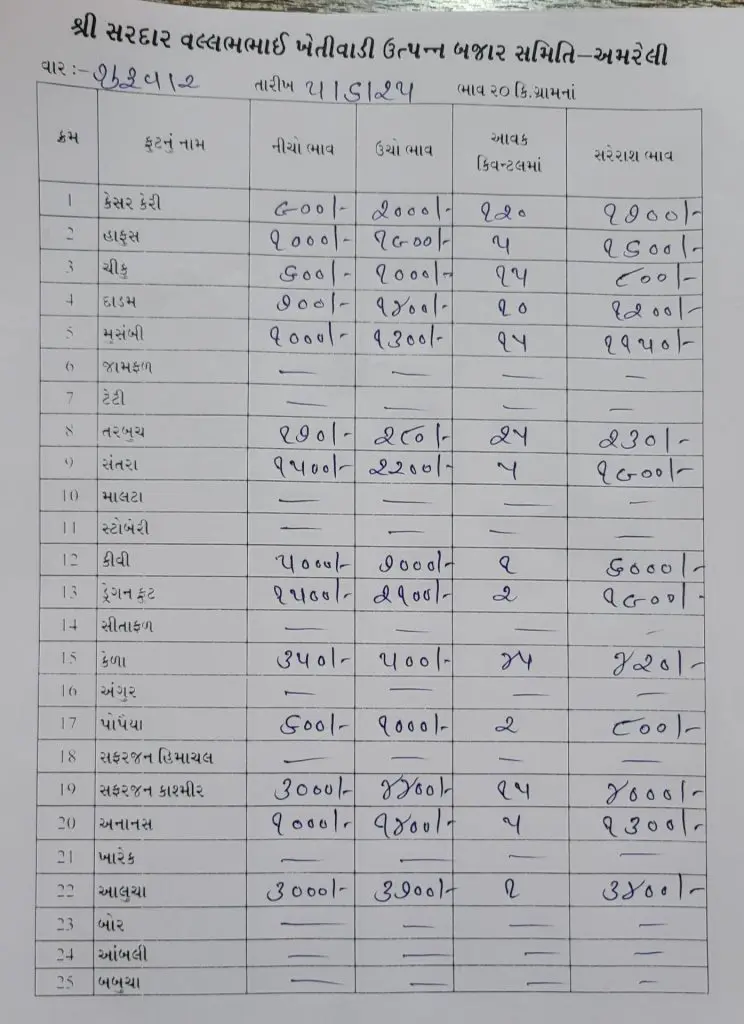 શ્રી સરદાર વલ્લભભાઈ ખેતીવાડી ઉત્પન્ન બજાર સમિતિ–અમરેલી
વાર :- ગુરૂવાર તારીખ ૫/૬/૨૫ ભાવ ૨૦ કિ.ગ્રામનાં
ક્રમ ફ્રુટનું નામ નીચો ભાવ ઉંચો ભાવ આવક કિવન્ટલમાં સરેરાશ ભાવ
1 કેસર કેરી ૯૦૦/- ૨૦૦૦/- ૧૨૦ ૧૭૦૦/-
2 હાફુસ ૧૦૦૦/- ૧૯૦૦/- ૫ ૧૬૦૦/-
3 ચીકુ ૬૦૦/- ૧૦૦૦/- ૧૫ ૮૦૦/-
4 દાડમ ૭૦૦/- ૧૪૦૦/- ૧૦ ૧૨૦૦/-
5 મુસંબી ૧૦૦૦/- ૧૩૦૦/- ૧૫ ૧૧૫૦/-
6 જામફળ — — — —
7 ટેટી — — — —
8 તરબુચ ૧૭૦/- ૨૮૦/- ૨૫ ૨૩૦/-
9 સંતરા ૧૫૦૦/- ૨૨૦૦/- ૫ ૧૯૦૦/-
10 માલટા — — — —
11 સ્ટોબેરી — — — —
12 કીવી ૫૦૦૦/- ૭૦૦૦/- ૧ ૬૦૦૦/-
13 ડ્રેગન ફ્રુટ ૧૫૦૦/- ૨૧૦૦/- ૨ ૧૯૦૦/-
14 સીતાફળ — — — —
15 કેળા ૩૫૦/- ૫૦૦/- ૪૫ ૪૨૦/-
16 અંગુર — — — —
17 પોપૈયા ૬૦૦/- ૧૦૦૦/- ૨ ૮૦૦/-
18 સફરજન હિમાચલ — — — —
19 સફરજન કાશ્મીર ૩૦૦૦/- ૪૪૦૦/- ૧૫ ૪૦૦૦/-
20 અનાનસ ૧૦૦૦/- ૧૪૦૦/- ૫ ૧૩૦૦/-
21 ખારેક — — — —
22 આલુચા ૩૦૦૦/- ૩૭૦૦/- ૧ ૩૪૦૦/-
23 બોર — — — —
24 આંબલી — — — —
25 બબુચા — — — —